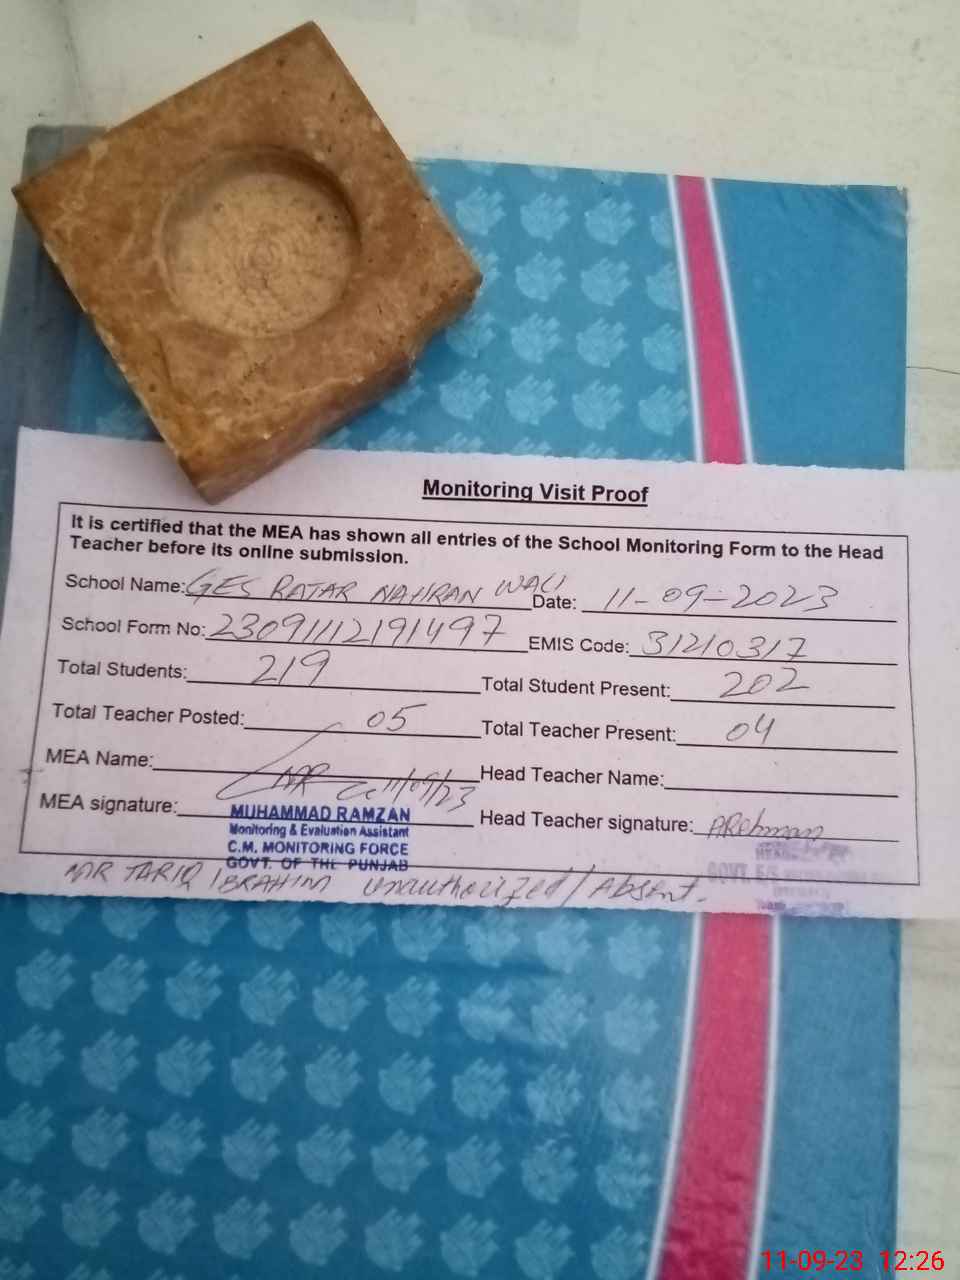 Monitoring Visit Proof
It is certified that the MEA has shown all entries of the School Monitoring Form to the Head
Teacher before its online submission.
School Name: GES RATAR NAHRAN WALI Date: 11-09-2023
School Form No: 23091112191497 EMIS Code: 31210317
Total Students: 219 Total Student Present: 202
Total Teacher Posted: 05 Total Teacher Present: 04
MEA Name: Head Teacher Name:
11/09/23
MEA signature: Head Teacher signature: ARehman
MUHAMMAD RAMZAN
Monitoring & Evaluation Assistant
C.M. MONITORING FORCE
GOVT. OF THE PUNJAB
GOVT. E/S
MR TARIQ IBRAHIM unauthorized/Absent.
11-09-23 12:26